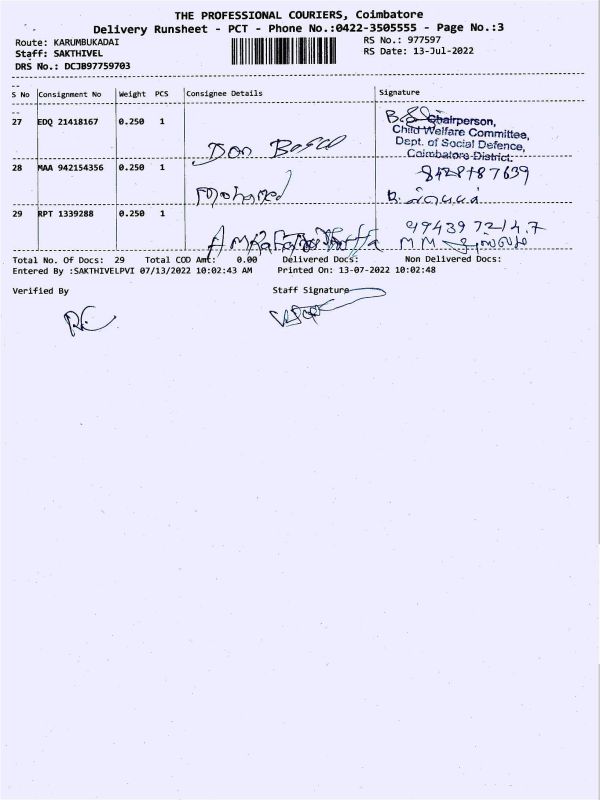 THE PROFESSIONAL COURIERS, Coimbatore
Delivery Runsheet - PCT - Phone No.:0422-3505555 - Page No.:3
Route: KARUMBUKADAI
RS No.: 977597
Staff: SAKTHIVEL
RS Date: 13-Jul-2022
DRS No.: DCJB97759703
S No Consignment No Weight PCS Consignee Details Signature
27 EDQ 21418167 0.250 1 Don Bosco
Chairperson,
Child Welfare Committee,
Dept. of Social Defence,
Coimbatore District.
28 MAA 942154356 0.250 1 Mohamed
29 RPT 1339288 0.250 1
Total No. Of Docs: 29 Total COD Amt: 0.00 Delivered Docs: Non Delivered Docs:
Entered By :SAKTHIVELPVI 07/13/2022 10:02:43 AM Printed On: 13-07-2022 10:02:48
Verified By Staff Signature